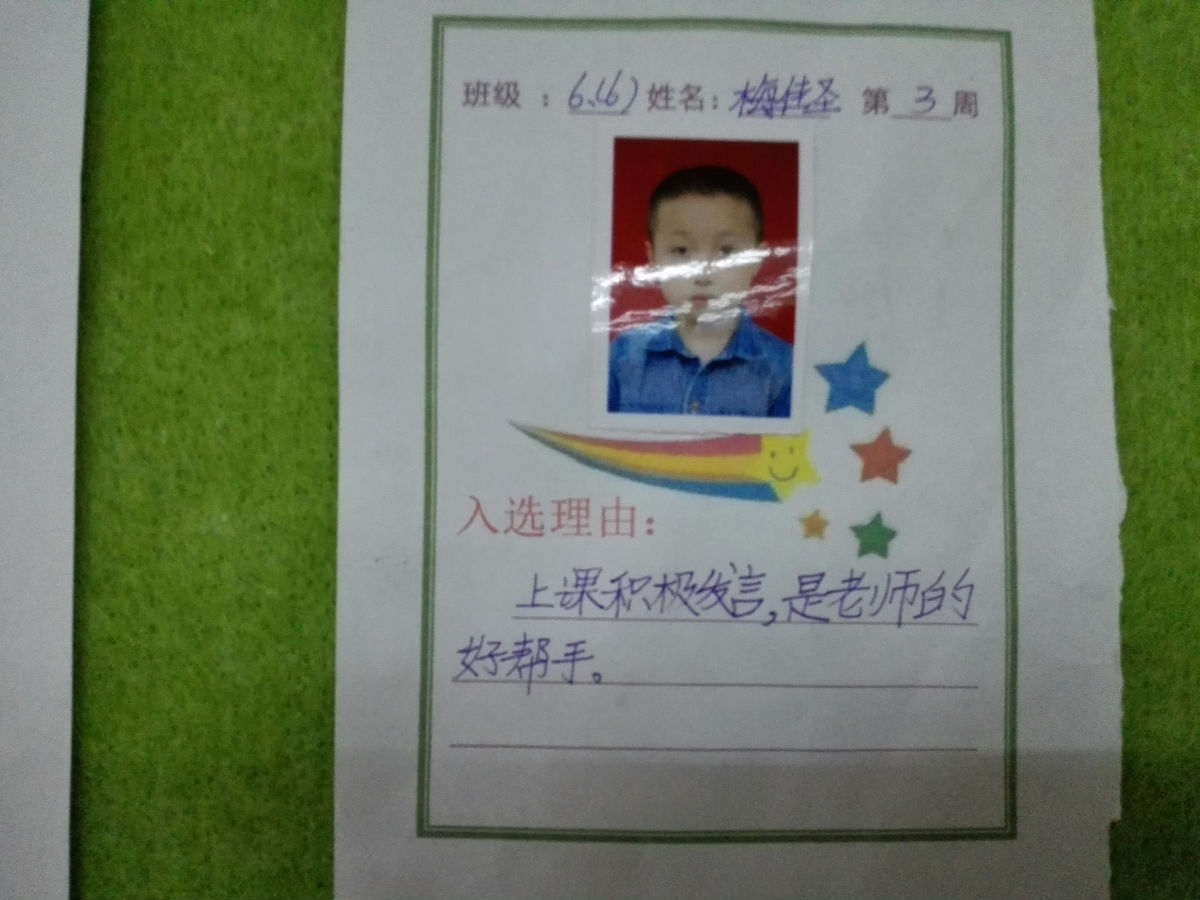 班级：6.(6) 姓名：梅佳圣 第 3 周
入选理由：
上课积极发言,是老师的
好帮手。